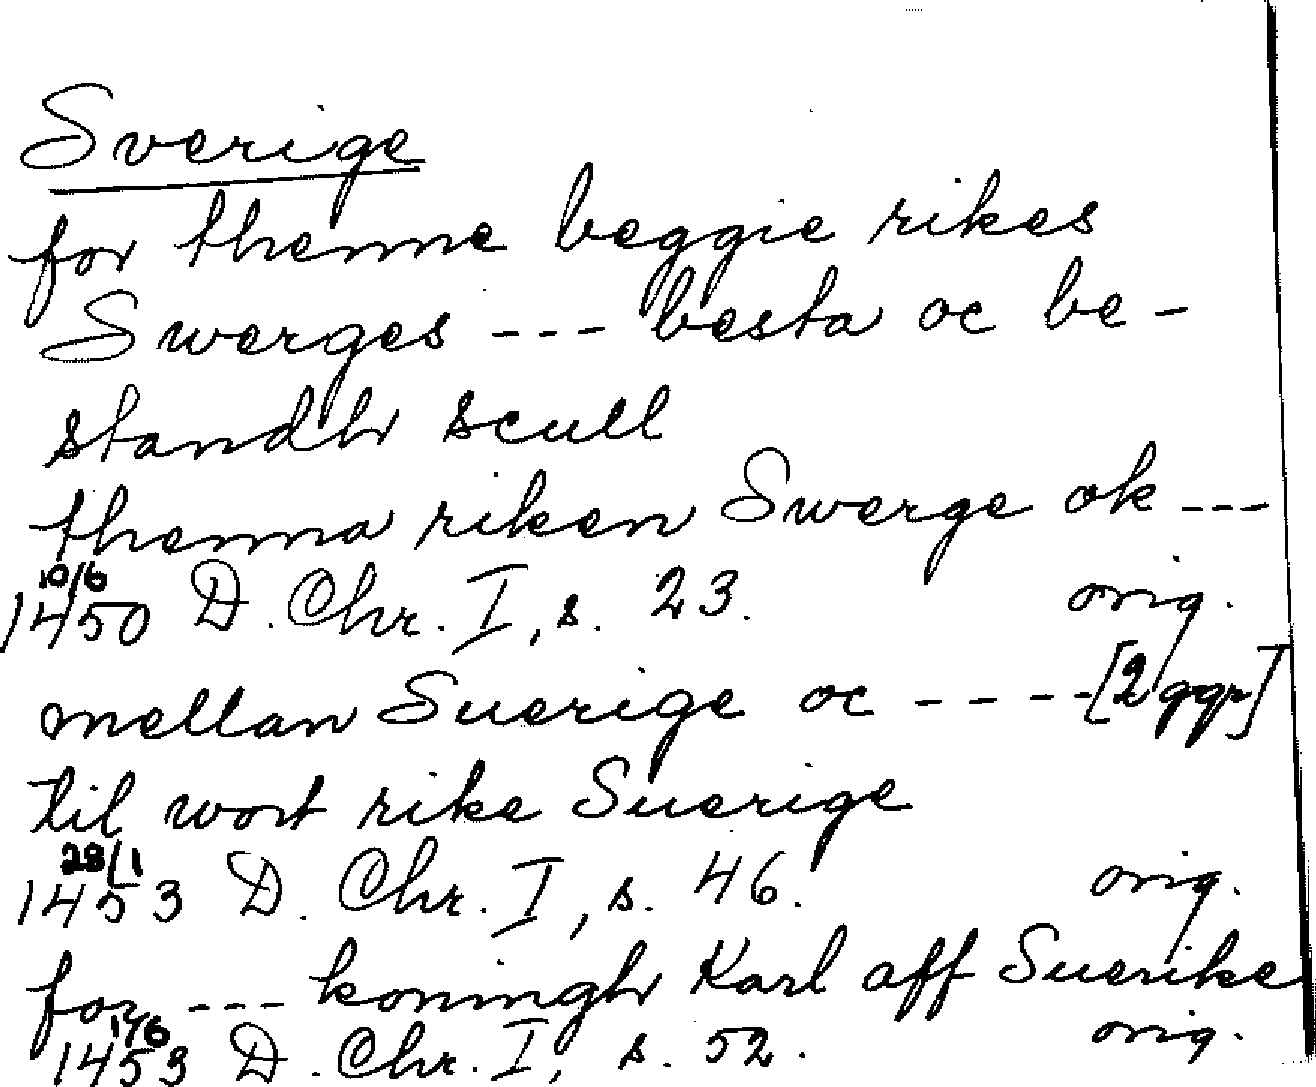 Sverige
for thenne beggie rikes
Swerges --- besta oc be-
standh scull
thenna riken Swerge ok ---
10/6
1450 D. Chr. I, s. 23. orig.
mellan Suerige oc ---- [2 ggr]
til wort rike Suerige
28/1
1453 D. Chr. I, s. 46. orig.
for --- koningh Karl aff Suerike
1/6
1453 D. Chr. I, s. 52. orig.